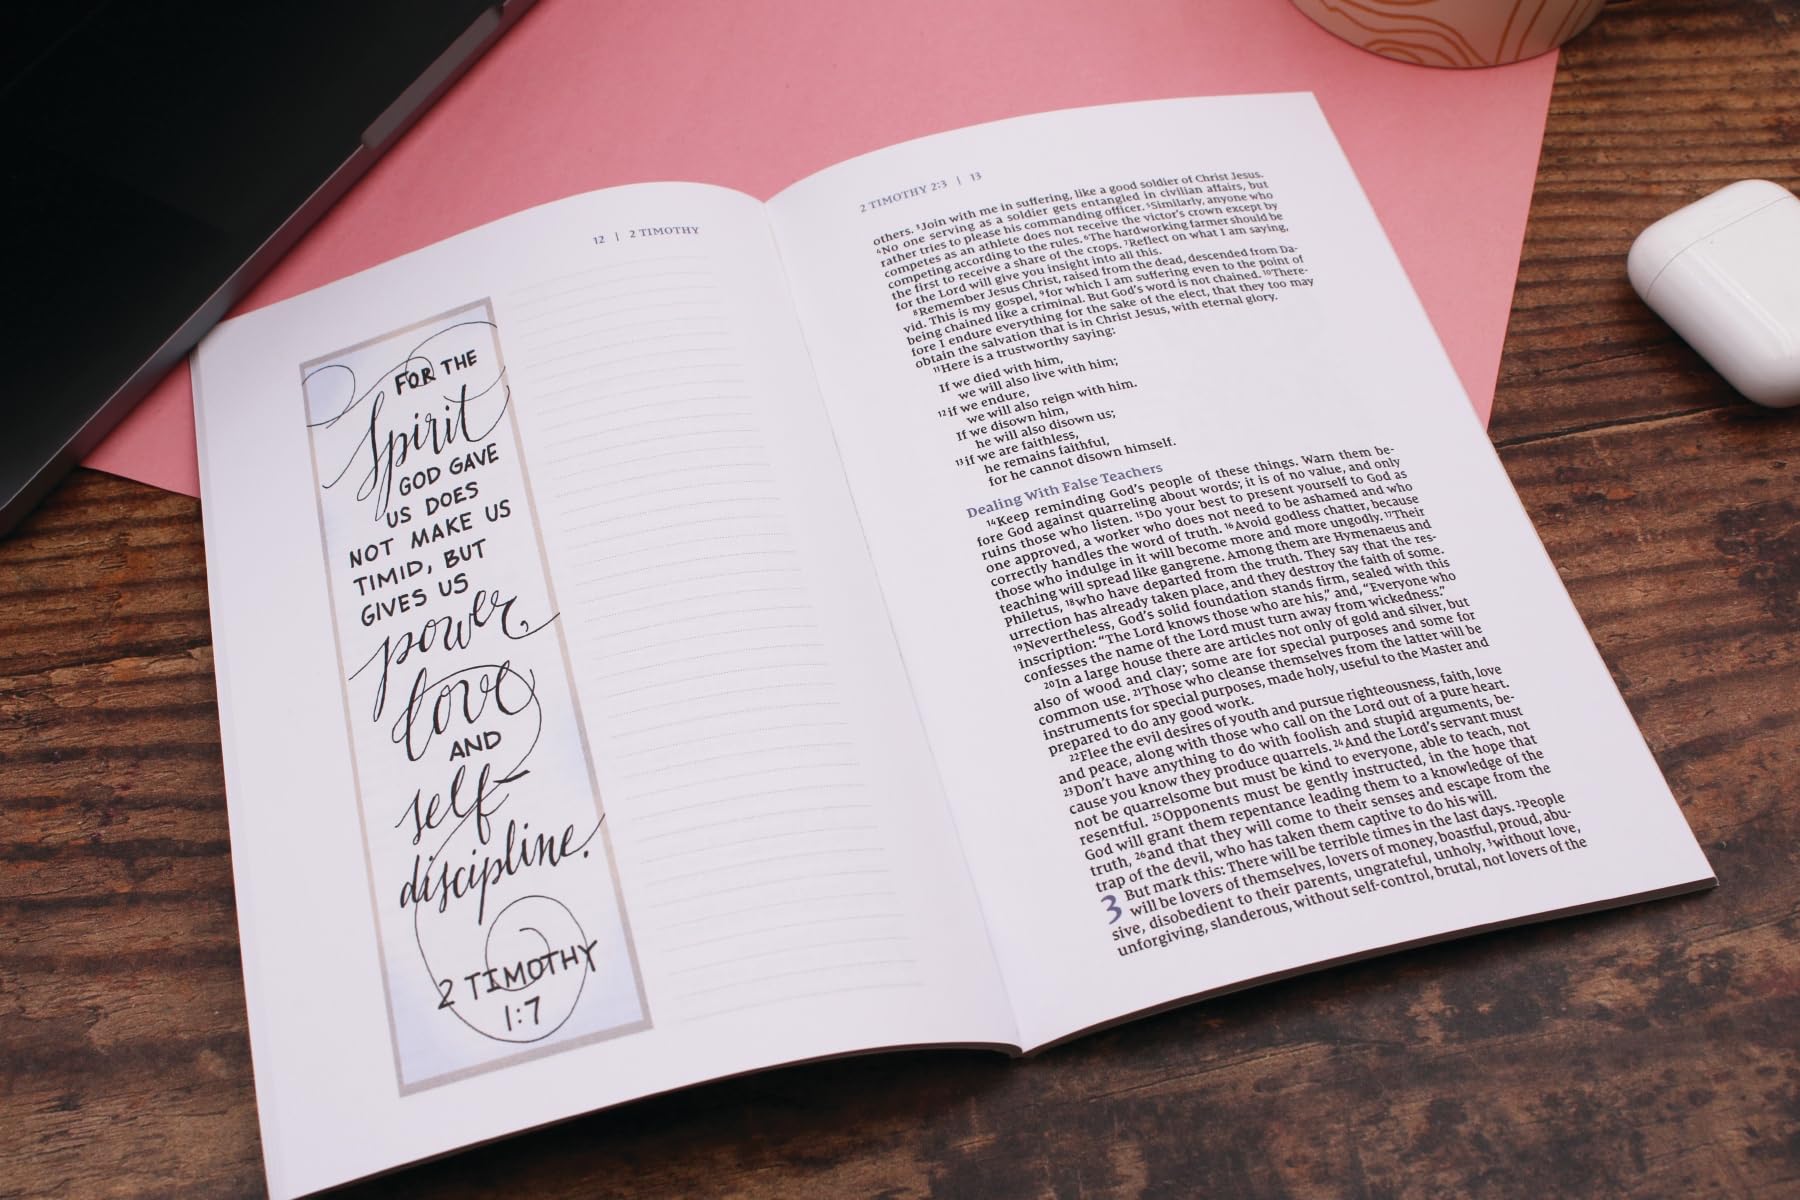 12 | 2 TIMOTHY
FOR THE
Spirit
GOD GAVE
US DOES
NOT MAKE US
TIMID, BUT
GIVES US
power,
love
AND
self-
discipline.
2 TIMOTHY
1:7
2 TIMOTHY 2:3 | 13
others. ³Join with me in suffering, like a good soldier of Christ Jesus.
⁴No one serving as a soldier gets entangled in civilian affairs, but
rather tries to please his commanding officer. ⁵Similarly, anyone who
competes as an athlete does not receive the victor's crown except by
competing according to the rules. ⁶The hardworking farmer should be
the first to receive a share of the crops. ⁷Reflect on what I am saying,
for the Lord will give you insight into all this.
⁸Remember Jesus Christ, raised from the dead, descended from Da-
vid. This is my gospel, ⁹for which I am suffering even to the point of
being chained like a criminal. But God's word is not chained. ¹⁰There-
fore I endure everything for the sake of the elect, that they too may
obtain the salvation that is in Christ Jesus, with eternal glory.
¹¹Here is a trustworthy saying:
If we died with him,
we will also live with him;
¹²if we endure,
we will also reign with him.
If we disown him,
he will also disown us;
¹³if we are faithless,
he remains faithful,
for he cannot disown himself.
Dealing With False Teachers
¹⁴Keep reminding God's people of these things. Warn them be-
fore God against quarreling about words; it is of no value, and only
ruins those who listen. ¹⁵Do your best to present yourself to God as
one approved, a worker who does not need to be ashamed and who
correctly handles the word of truth. ¹⁶Avoid godless chatter, because
those who indulge in it will become more and more ungodly. ¹⁷Their
teaching will spread like gangrene. Among them are Hymenaeus and
Philetus, ¹⁸who have departed from the truth. They say that the res-
urrection has already taken place, and they destroy the faith of some.
¹⁹Nevertheless, God's solid foundation stands firm, sealed with this
inscription: “The Lord knows those who are his,” and, “Everyone who
confesses the name of the Lord must turn away from wickedness.”
²⁰In a large house there are articles not only of gold and silver, but
also of wood and clay; some are for special purposes and some for
common use. ²¹Those who cleanse themselves from the latter will be
instruments for special purposes, made holy, useful to the Master and
prepared to do any good work.
²²Flee the evil desires of youth and pursue righteousness, faith, love
and peace, along with those who call on the Lord out of a pure heart.
²³Don't have anything to do with foolish and stupid arguments, be-
cause you know they produce quarrels. ²⁴And the Lord's servant must
not be quarrelsome but must be kind to everyone, able to teach, not
resentful. ²⁵Opponents must be gently instructed, in the hope that
God will grant them repentance leading them to a knowledge of the
truth, ²⁶and that they will come to their senses and escape from the
trap of the devil, who has taken them captive to do his will.
3 But mark this: There will be terrible times in the last days. ²People
will be lovers of themselves, lovers of money, boastful, proud, abu-
sive, disobedient to their parents, ungrateful, unholy, ³without love,
unforgiving, slanderous, without self-control, brutal, not lovers of the